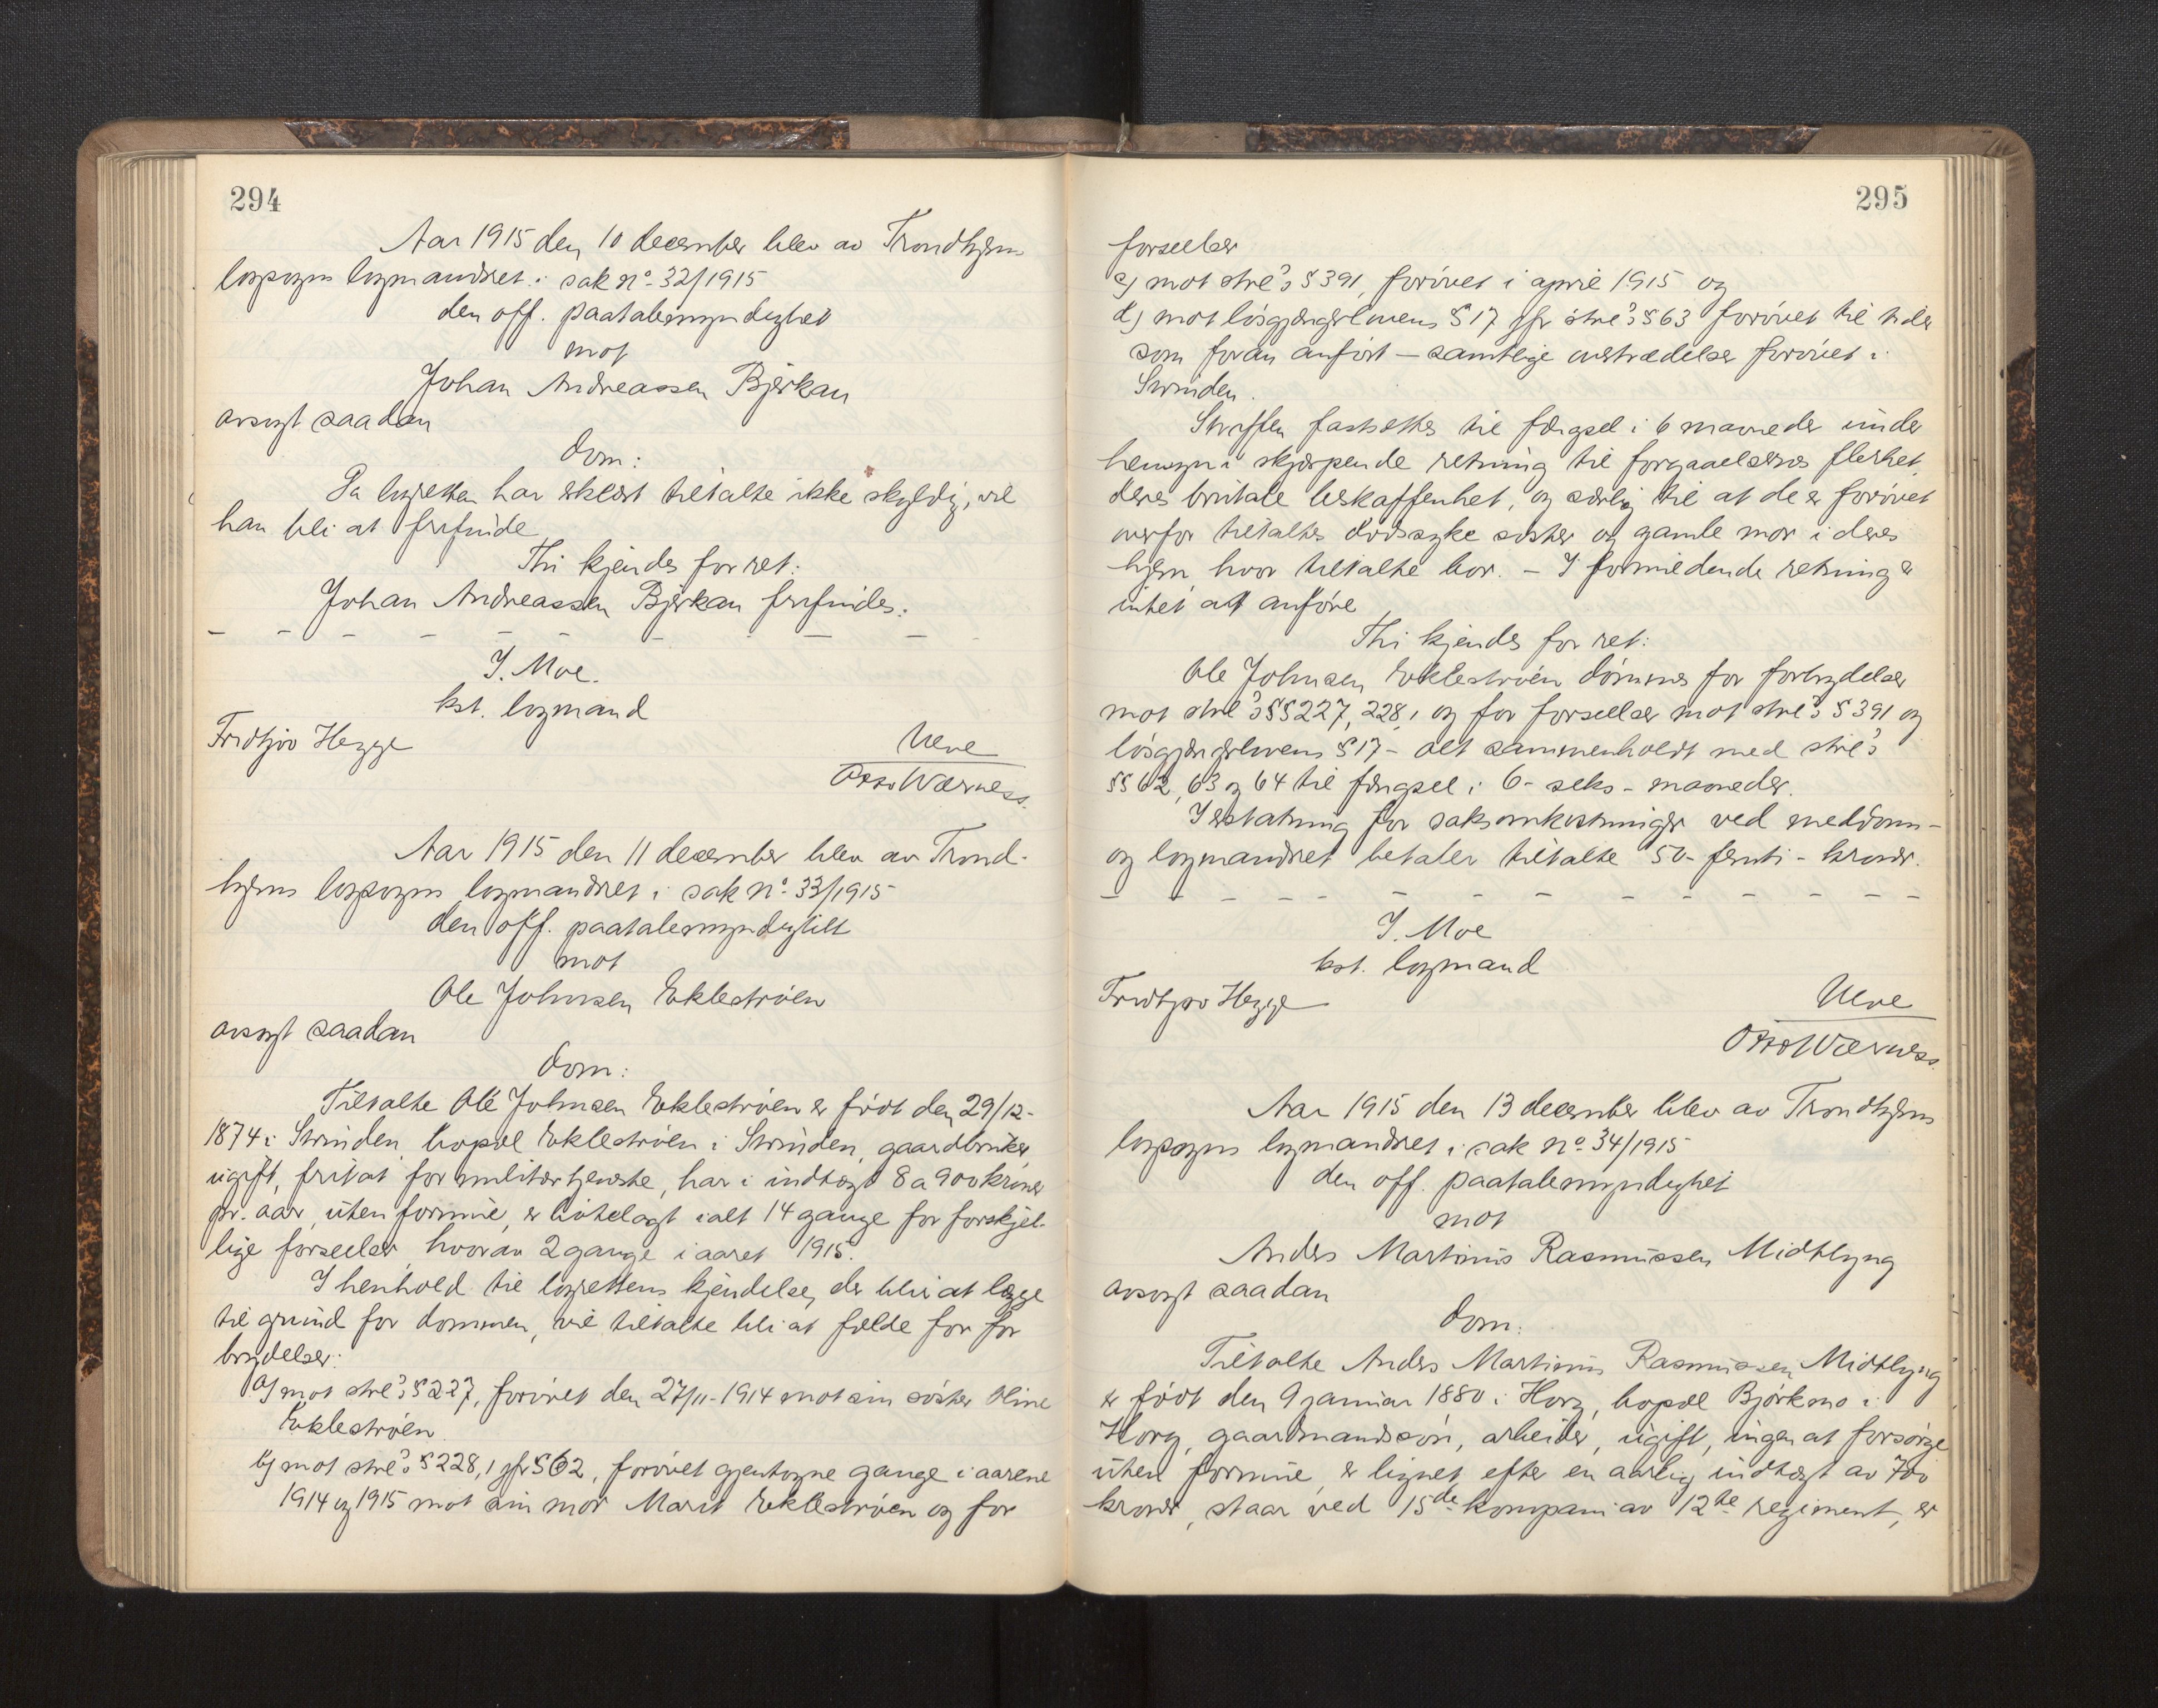 294
Aar 1915 den 10 december blev av Trondhjems
lagsogns lagmandsret i sak no. 32/1915
den off. paatalemyndighet
mot
Johan Andreassen Bjerkan
avsagt saadan
dom:
Da lagretten har erklært tiltalte ikke skyldig, vil
han bli at frifinde
Thi kjendes for ret:
Johan Andreassen Bjerkan frifindes.
I. Moe.
kst. lagmand
Fridtjov Hegge
Otto Værness.
Aar 1915 den 11 december blev av Trond-
hjems lagsogns lagmandsret i sak no. 33/1915
den off. paatalemyndighet
mot
Ole Johnsen Eklestrøen
avsagt saadan
dom:
Tiltalte Ole Johnsen Eklestrøen er født den 29/12-
1874 i Strinden, bopæl Eklestrøen i Strinden, gaardbruker,
ugift, fritat for militærtjeneste, har i indtægt 8 a 900 kroner
pr. aar, uten formue, er bøtelagt ialt 14 gange for forskjel-
lige forseelser, hvorav 2 gange i aaret 1915.
I henhold til lagrettens kjendelse, der blir at lægge
til grund for dommen, vil tiltalte bli at fælde for for
brydelser:
a) mot strl's § 227, forøvet den 27/11-1914 mot sin søster Oline
Eklestrøen
b) mot strl's § 228, 1 jfr § 62, forøvet gjentagne gange i aarene
1914 og 1915 mot sin mor Marit Eklestrøen og for
295
forseelser
c) mot strl's § 391, forøvet i april 1915 og
d) mot løsgjængerlovens § 17 jfr strl's § 63 forøvet til tider
som foran anført – samtlige overtrædelser forøvet i
Strinden.
Straffen fastsættes til fængsel i 6 maaneder under
hensyn i skjærpende retning til forgaaelsernes flerhet,
deres brutale beskaffenhet, og særlig til at de er forøvet
overfor tiltaltes dødssyke søster og gamle mor i deres
hjem, hvor tiltalte bor. – I formildende retning er
intet at anføre
Thi kjendes for ret:
Ole Johnsen Eklestrøen dømmes for forbrydelser
mot strl's §§ 227, 228,1 og for forseelser mot strl's § 391 og
løsgjængerlovens § 17 – alt sammenholdt med strl's
§§ 62, 63 og 64 til fængsel i 6 - seks - maaneder.
I erstatning for saksomkostninger ved meddoms-
og lagmandsret betaler tiltalte 50 - femti - kroner.
I. Moe
kst. lagmand
Fridtjov Hegge
Otto Værness.
Aar 1915 den 13 december blev av Trondhjems
lagsogns lagmandsret i sak no. 34/1915
den off. paatalemyndighet
mot
Anders Martinus Rasmussen Midtlyng
avsagt saadan
dom:
Tiltalte Anders Martinus Rasmussen Midtlyng
er født den 9 januar 1880 i Horg, bopæl Bjørkmo i
Horg, gaardmandssøn, arbeider, ugift, ingen at forsørge
uten formue, er lignet efter en aarlig indtægt av 700
kroner, staar ved 15de kompani av 12te regiment, er